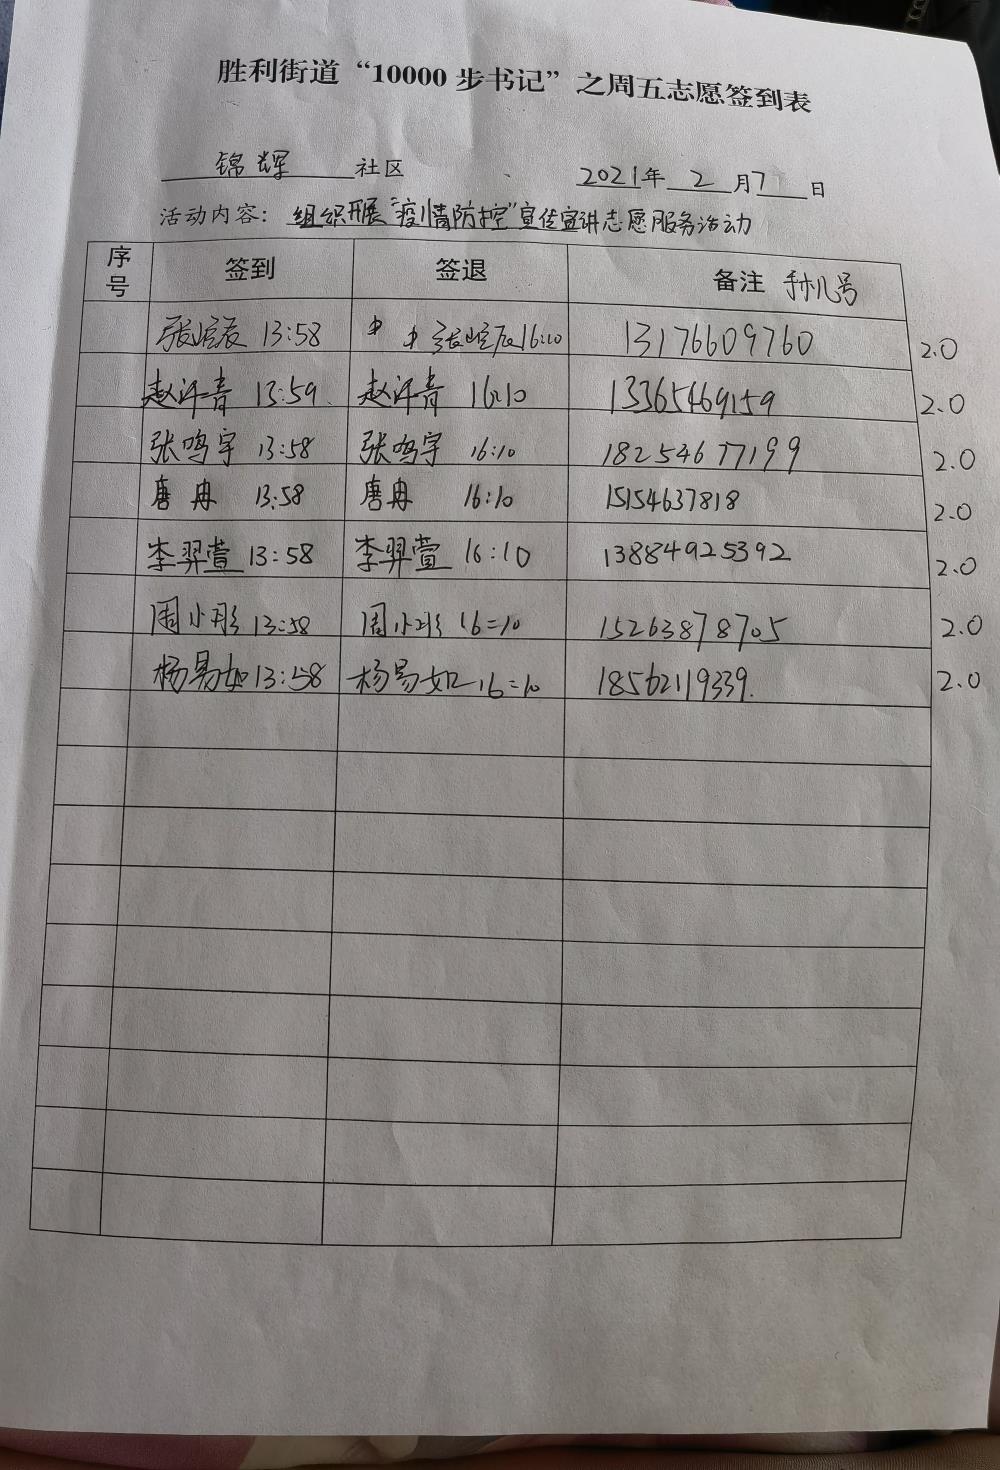 胜利街道“10000步书记”之周五志愿签到表
锦辉 社区 2021年 2 月 7 日
活动内容：组织开展“疫情防控”宣传宣讲志愿服务活动
序号 签到 签退 备注 手机号
13:58 16:10 13176609760 2.0
赵洋青 13:59 赵洋青 16:10 13365469159 2.0
张鸣宇 13:58 张鸣宇 16:10 18254677199 2.0
唐冉 13:58 唐冉 16:10 15154637818 2.0
李羿萱 13:58 李羿萱 16:10 13884925392 2.0
周小彤 13:58 周小彤 16=10 15263878705 2.0
杨易如 13:58 杨易如 16=10 18562119339. 2.0